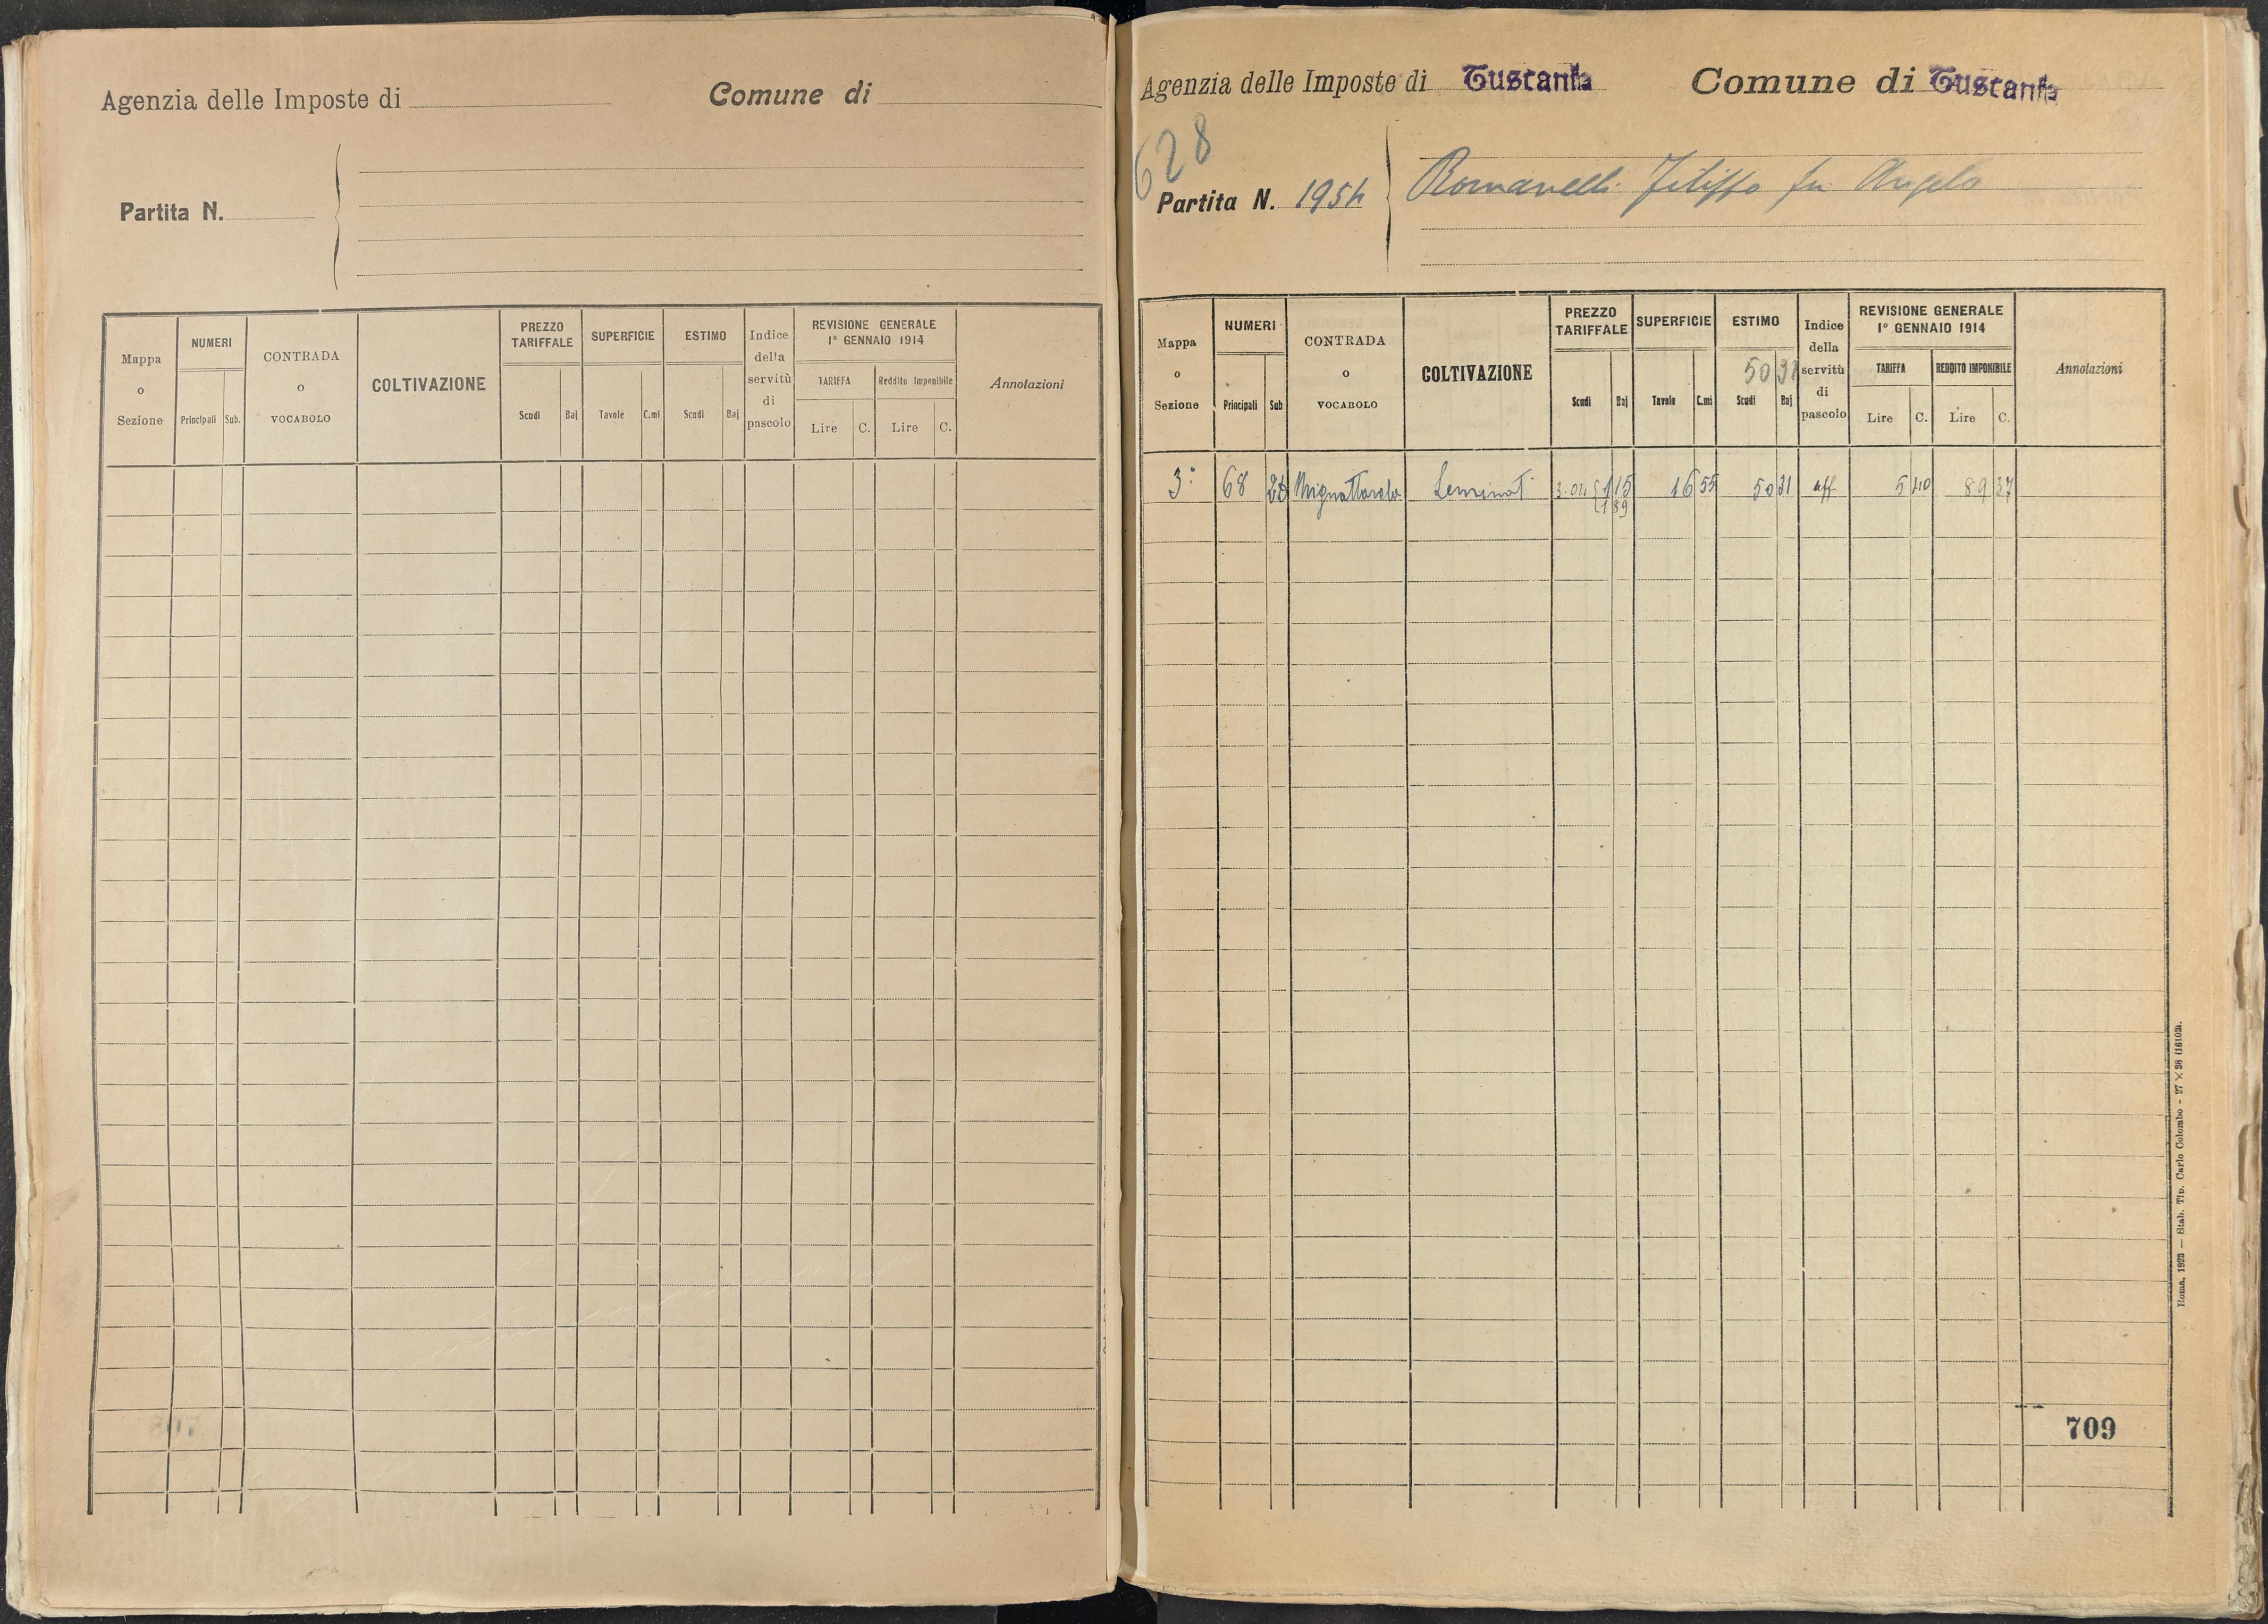 Agenzia delle Imposte di
Comune di
Partita N.
Mappa o Sezione
NUMERI
Principali Sub.
CONTRADA o VOCABOLO
COLTIVAZIONE
PREZZO TARIFFALE
Scudi Baj
SUPERFICIE
Tavole C.mi
ESTIMO
Scudi Baj
Indice della servitù di pascolo
REVISIONE GENERALE
1º GENNAIO 1914
TARIFFA Reddito Imponibile
Lire C. Lire C.
Annotazioni
Agenzia delle Imposte di Tuscania Comune di Tuscania
628
Partita N. 1954 Romanelli Filippo fu Angelo
Mappa o Sezione
NUMERI
Principali Sub
CONTRADA o VOCABOLO
COLTIVAZIONE
PREZZO TARIFFALE
Scudi Baj
SUPERFICIE
Tavole C.mi
ESTIMO
50 31
Scudi Baj
Indice della servitù di pascolo
REVISIONE GENERALE
1º GENNAIO 1914
TARIFFA REDDITO IMPONIBILE
Lire C. Lire C.
Annotazioni
3º 68 Mignattarola Seminat 3.04 1 15 16 55 50 31 aff 5 40 89 37
1 89
709
Roma, 1923 — Stab. Tip. Carlo Colombo - 27 × 38 (1610).